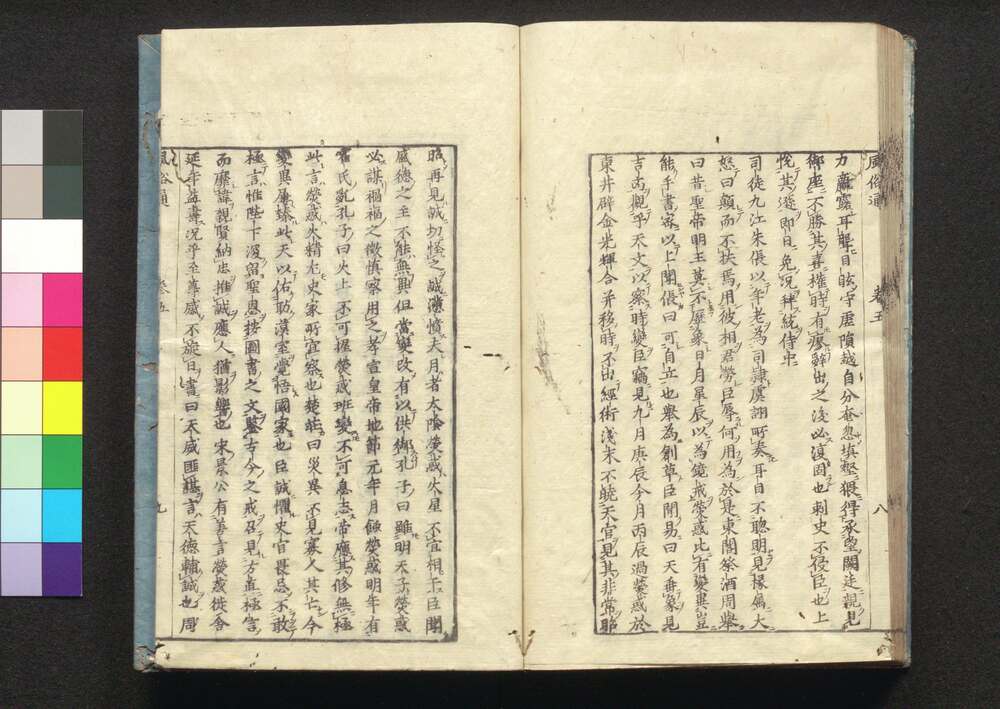 風俗通 巻五 八
力羸露耳聾目眩守虛隕越自分奄忽填壑猥得承望闕廷親見
御座不勝其喜權時有瘳辭出之後必復固也刺史不侵臣也上
悅其遜即日免況拜統侍中
司徒九江朱倀以年老為司隸虞詡所奏耳目不聰明見掾屬大
怒曰顛而不扶焉用彼相君勞臣辱何用為於是東閤祭酒周舉
曰昔聖帝明王莫不歷象日月星辰以為鏡戒熒惑比有變異豈
能手書密以上聞倀曰可自力也舉為創草臣聞易曰天垂象見
吉凶觀乎天文以察時變臣竊見九月庚辰今月丙辰過熒惑於
東井辟金光輝合并移時不出經術淺末不曉天官見其非常昭
昭再見誠切怪之誠懣憤夫月者太陰熒惑火星不宜相干臣聞
盛德之主不能無異但當變改有以供御孔子曰雖明天子熒惑
必謀禍福之徵慎察用之孝宣皇帝地節元年月蝕熒惑明年有
霍氏亂孔子曰火上不可握熒惑班變不可息志帝應其修無極
此言熒惑火精尤史家所宜察也楚莊曰災異不見寡人其亡今
變異屢臻此天以佑助漢室覺悟國家也臣誠懼史官畏忌不敢
極言惟陛下深留聖思按圖書之文鑒古今之戒召見方直極言
而靡諱親賢納忠推誠應人猶影響也宋景公有善言熒惑徙舍
延年益壽況乎至尊感不旋日書曰天威匪諶言天德輔誠也周
風俗通 巻五 九